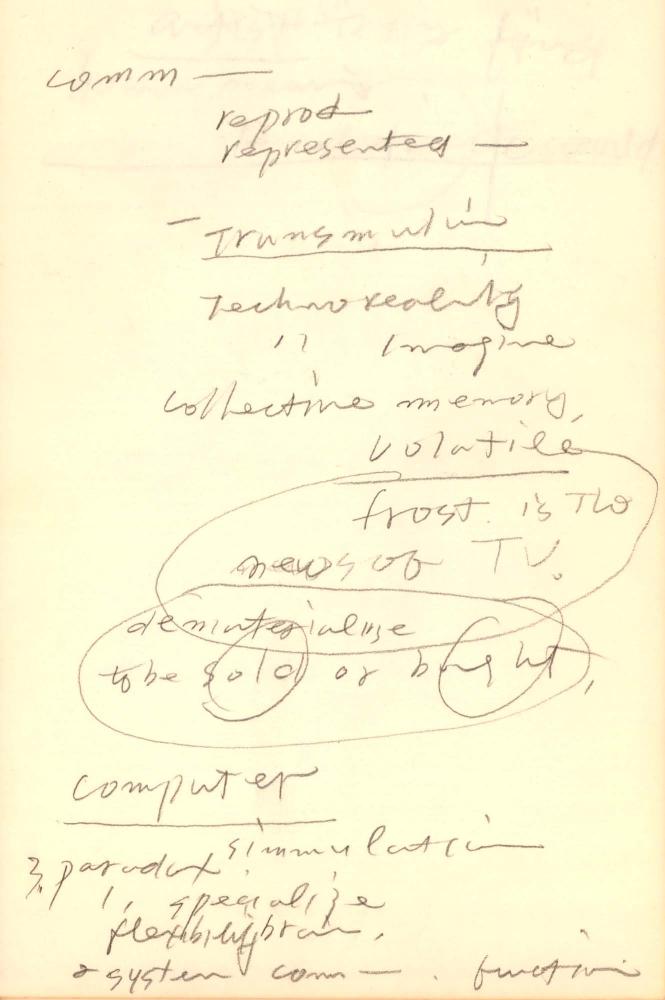 comm —
reprod
represented —
— Transmutin
Technoreality
" Imagine
Collective memory,
volatile
frost. is The
news of TV.
dematerialize
to be sold or bought,
computer
simmulation
3. paradox
1, specialize
flexibility brain,
2 system comm — . function